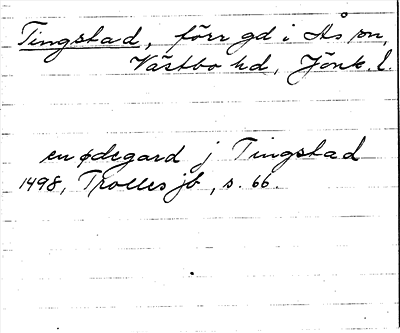 Tingstad, förr gd i Ås sn,
Västbo hd, Jönk. l.
en ødegard j Tingstad
1498, Trolles jb, s. 66.